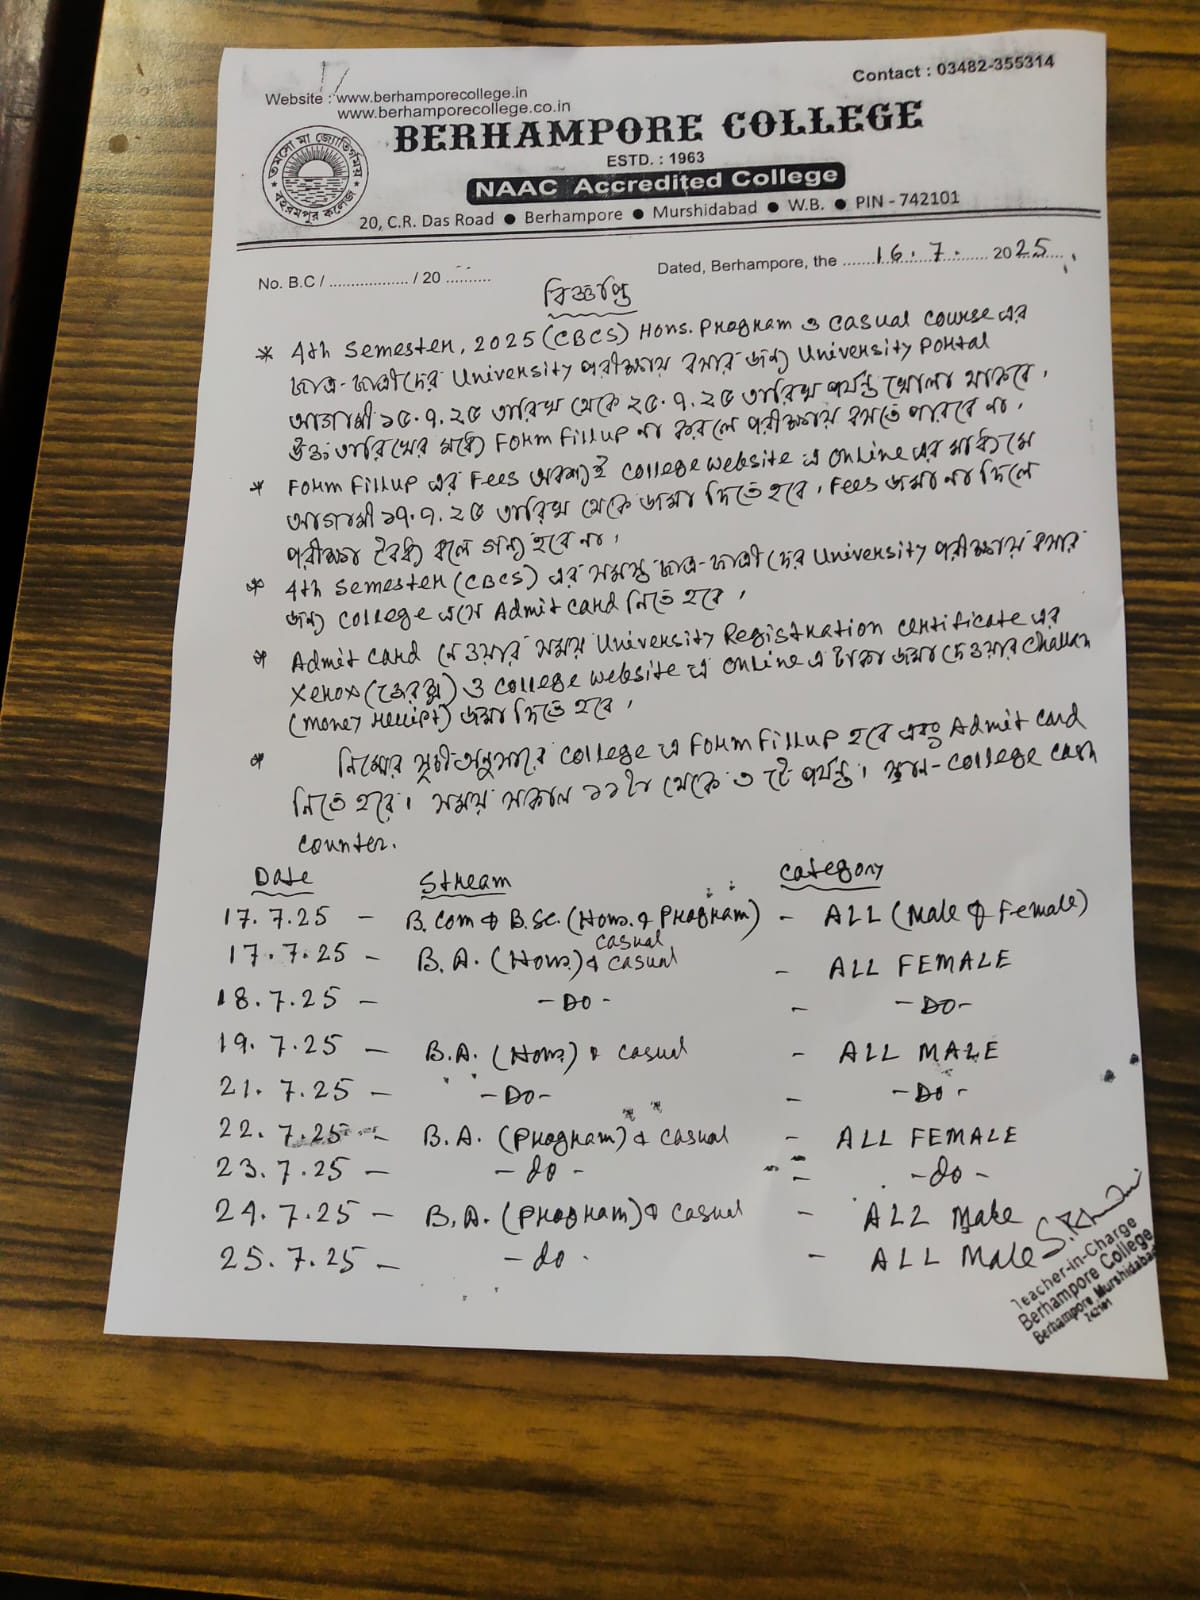 Website : www.berhamporecollege.in
www.berhamporecollege.co.in
Contact : 03482-355314
BERHAMPORE COLLEGE
ESTD. : 1963
NAAC Accredited College
20, C.R. Das Road ● Berhampore ● Murshidabad ● W.B. ● PIN - 742101
তমসো মা জ্যোতির্গময়
বহরমপুর কলেজ
No. B.C / .................. / 20 ..........
Dated, Berhampore, the ......16.7....... 2025
বিজ্ঞপ্তি
* 4th Semester, 2025 (CBCS) Hons. Program ও Casual Course এর
ছাত্র-ছাত্রীদের University পরীক্ষায় বসার জন্য University Portal
আগামী ১৫.৭.২৫ তারিখ থেকে ২৫.৭.২৫ তারিখ পর্যন্ত খোলা থাকবে।
উক্ত তারিখের মধ্যে Form Fillup না করলে পরীক্ষায় বসতে পারবে না।
* Form Fillup এর Fees অবশ্যই College website এ online এর মাধ্যমে
আগামী ১৭.৭.২৫ তারিখ থেকে জমা দিতে হবে। Fees জমা না দিলে
পরীক্ষা বৈধ্য বলে গন্য হবে না।
* 4th Semester (CBCS) এর সমস্ত ছাত্র-ছাত্রীদের University পরীক্ষায় বসার
জন্য College এসে Admit Card নিতে হবে।
* Admit Card নেওয়ার সময় University Registration Certificate এর
Xerox (জেরক্স) ও College website এ online এ টাকা জমা দেওয়ার Challan
(money receipt) জমা দিতে হবে।
* নিম্নের সূচী অনুসারে College এ Form Fillup হবে এবং Admit Card
নিতে হবে। সময় সকাল ১১টা থেকে ৩ টে পর্যন্ত। স্থান- College Cash
Counter.
Date Stream Category
17.7.25 - B.Com & B.Sc. (Hons. & Program) - ALL (Male & Female)
casual
17.7.25 - B.A. (Hons.) & casual - ALL FEMALE
18.7.25 - - DO - - - DO -
19.7.25 - B.A. (Hons) & casual - ALL MALE
21.7.25 - - DO - - - DO -
22.7.25 - B.A. (Program) & casual - ALL FEMALE
23.7.25 - - do - - - do -
24.7.25 - B.A. (Program) & casual - ALL Male
25.7.25 - - do - - ALL Male
Teacher-in-Charge
Berhampore College
Berhampore, Murshidabad
742101